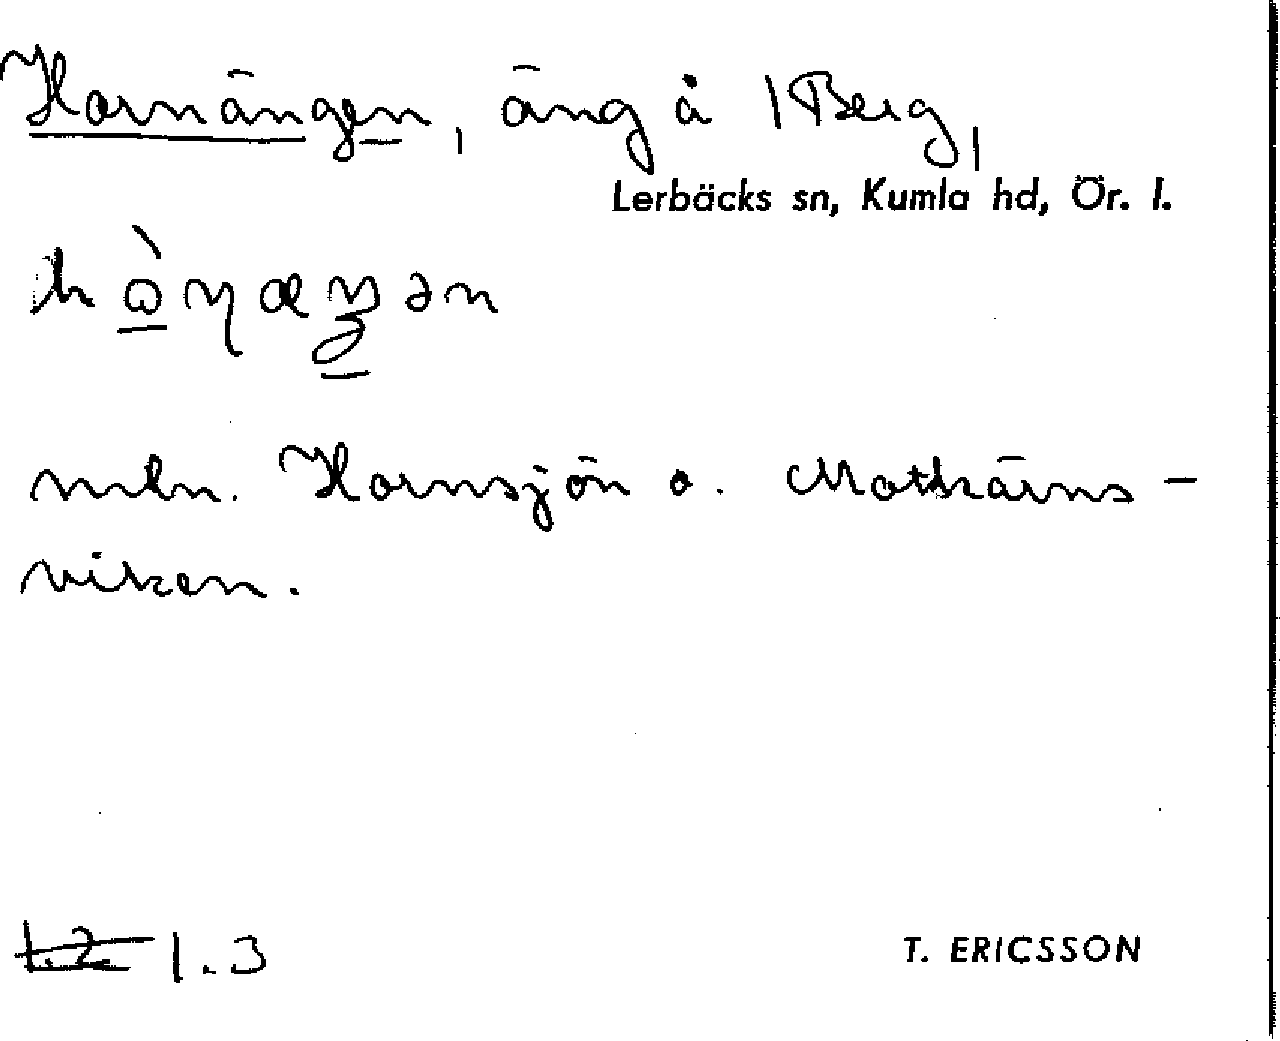 Hornängen, äng å Berg,
Lerbäcks sn, Kumla hd, Ör. l.
mln. Hornsjön o. Mothärns-
viken.
1.2 1.3
T. ERICSSON